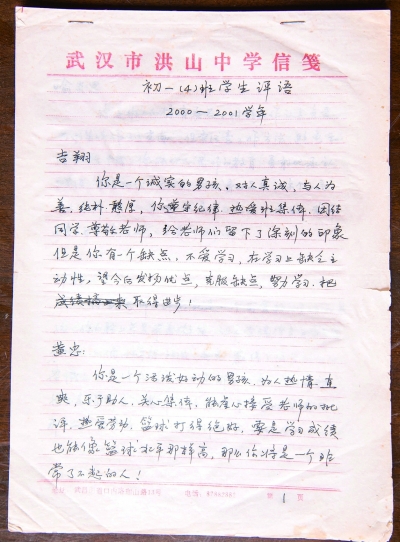 武汉市洪山中学信笺
初一(4)班学生评语
2000—2001学年
吉翔
你是一个诚实的男孩、对人真诚,与人为
善,纯朴憨厚,你遵守纪律,热爱班集体,团结
同学,尊敬老师,给老师们留下了深刻的印象
但是你有一个缺点,不爱学习,在学习上缺乏主
动性,望今后发扬优点,克服缺点,努力学习,把
取得进步!
黄忠:
你是一个活泼好动的男孩,为人热情、直
爽,乐于助人,关心集体,能虚心接受老师的批
评,热爱劳动,篮球打得绝好,要是学习成绩
也能像篮球水平那样高,那么你将是一个非
常了不起的人!
电话:
第 1 页